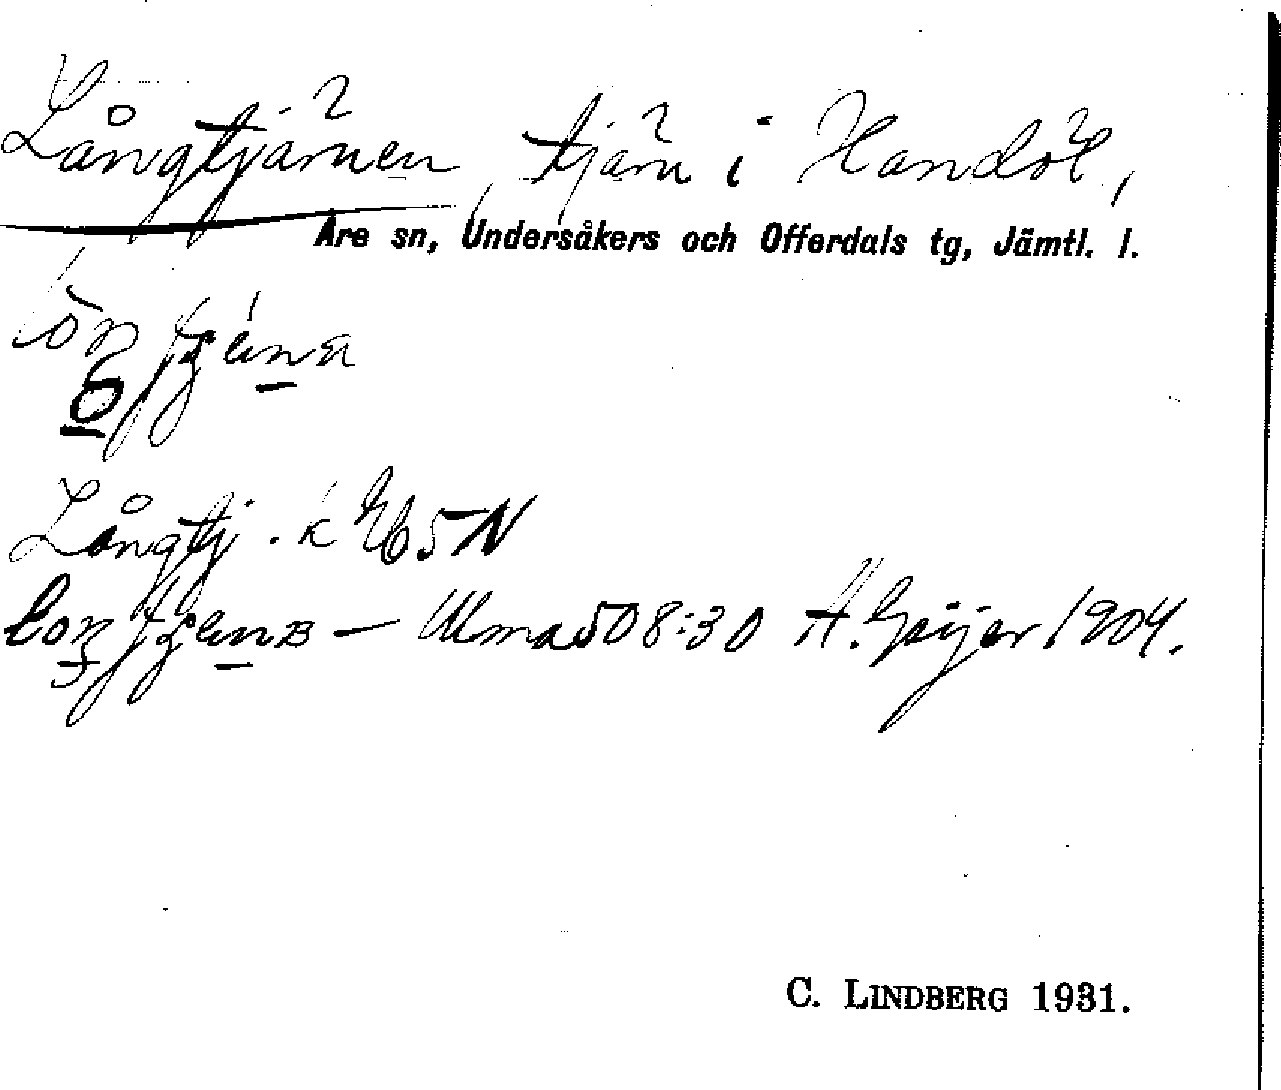 Långtjärnen, tjärn i Handöl,
Åre sn, Undersåkers och Offerdals tg, Jämtl. l.
Långtj. k Eb 5 N
— Ulma 508:30 A. Geijer 1904.
C. LINDBERG 1931.